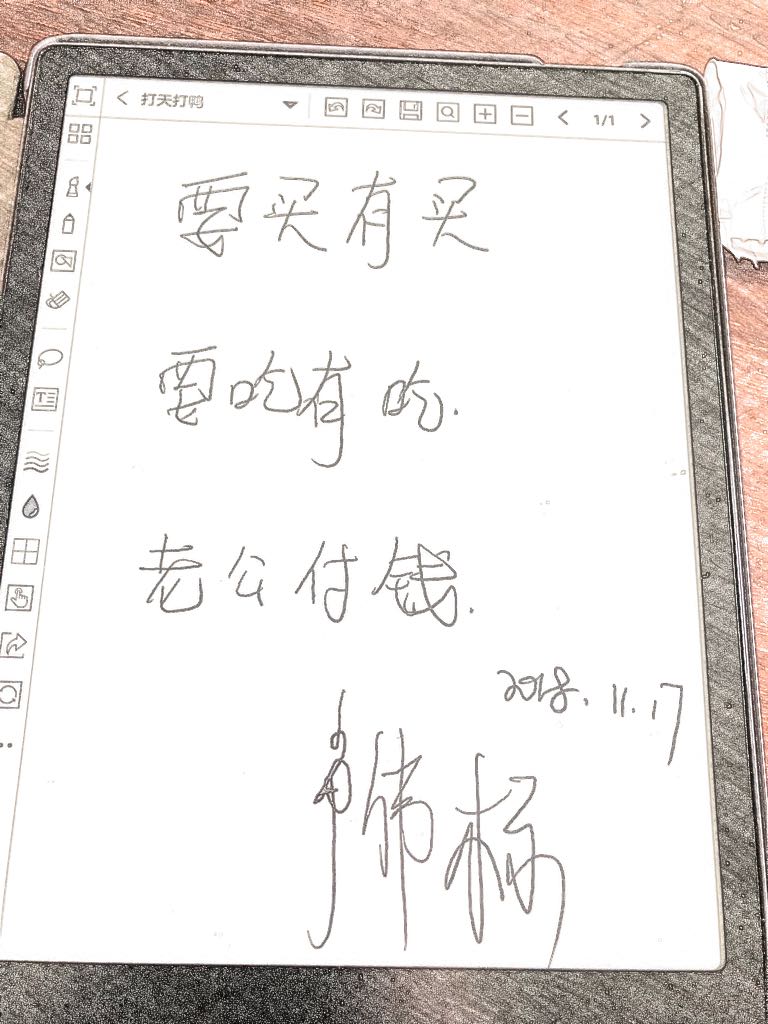 打天打鸭
1/1
要买有买
要吃有吃.
老公付钱.
2018.11.17